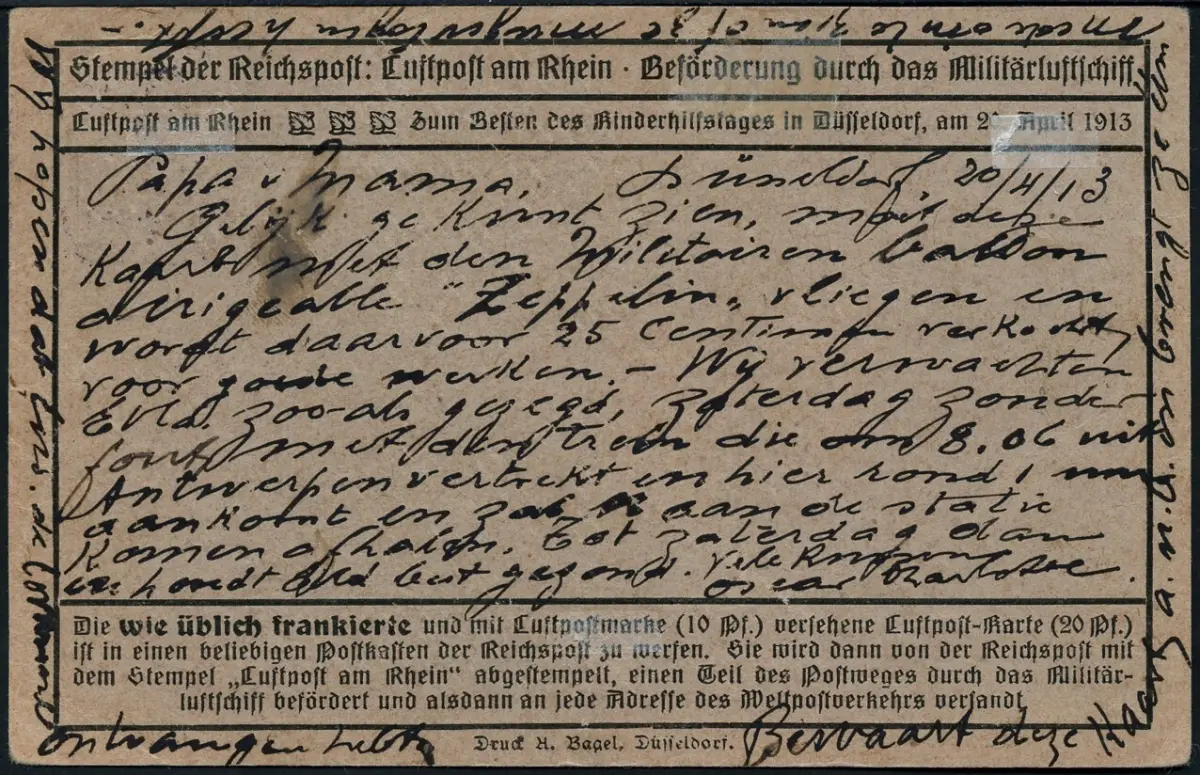 Stempel der Reichspost: Luftpost am Rhein · Beförderung durch das Militärluftschiff
Luftpost am Rhein Zum Besten des Kinderhilfstages in Düsseldorf, am April 1913
Papa & Mama, Düsseldorf, 20/4/13
Gelijk ge kunt zien, moet deze
Kaart met den Militairen ballon
dirigeable "Zeppelin" vliegen en
wordt daarvoor 25 Centimen verkocht,
voor goede werken. – Wij verwachten
zoo-als gezegd, zaterdag zonder
fout met den trein die om 8.06 uit
Antwerpen vertrekt en hier rond 1 uur
aankomt en zal U aan de statie
komen afhalen. Tot zaterdag dan
en houdt best gezond. Vele Kussen
Oscar Charlotte.
Die wie üblich frankierte und mit Luftpostmarke (10 Pf.) versehene Luftpost-Karte (20 Pf.)
ist in einen beliebigen Postkasten der Reichspost zu werfen. Sie wird dann von der Reichspost mit
dem Stempel „Luftpost am Rhein“ abgestempelt, einen Teil des Postweges durch das Militär-
luftschiff befördert und alsdann an jede Adresse des Weltpostverkehrs versandt.
Druck A. Bagel, Düsseldorf.
Wij hopen dat de
ontvangen hebt
Bewaart deze Kaart